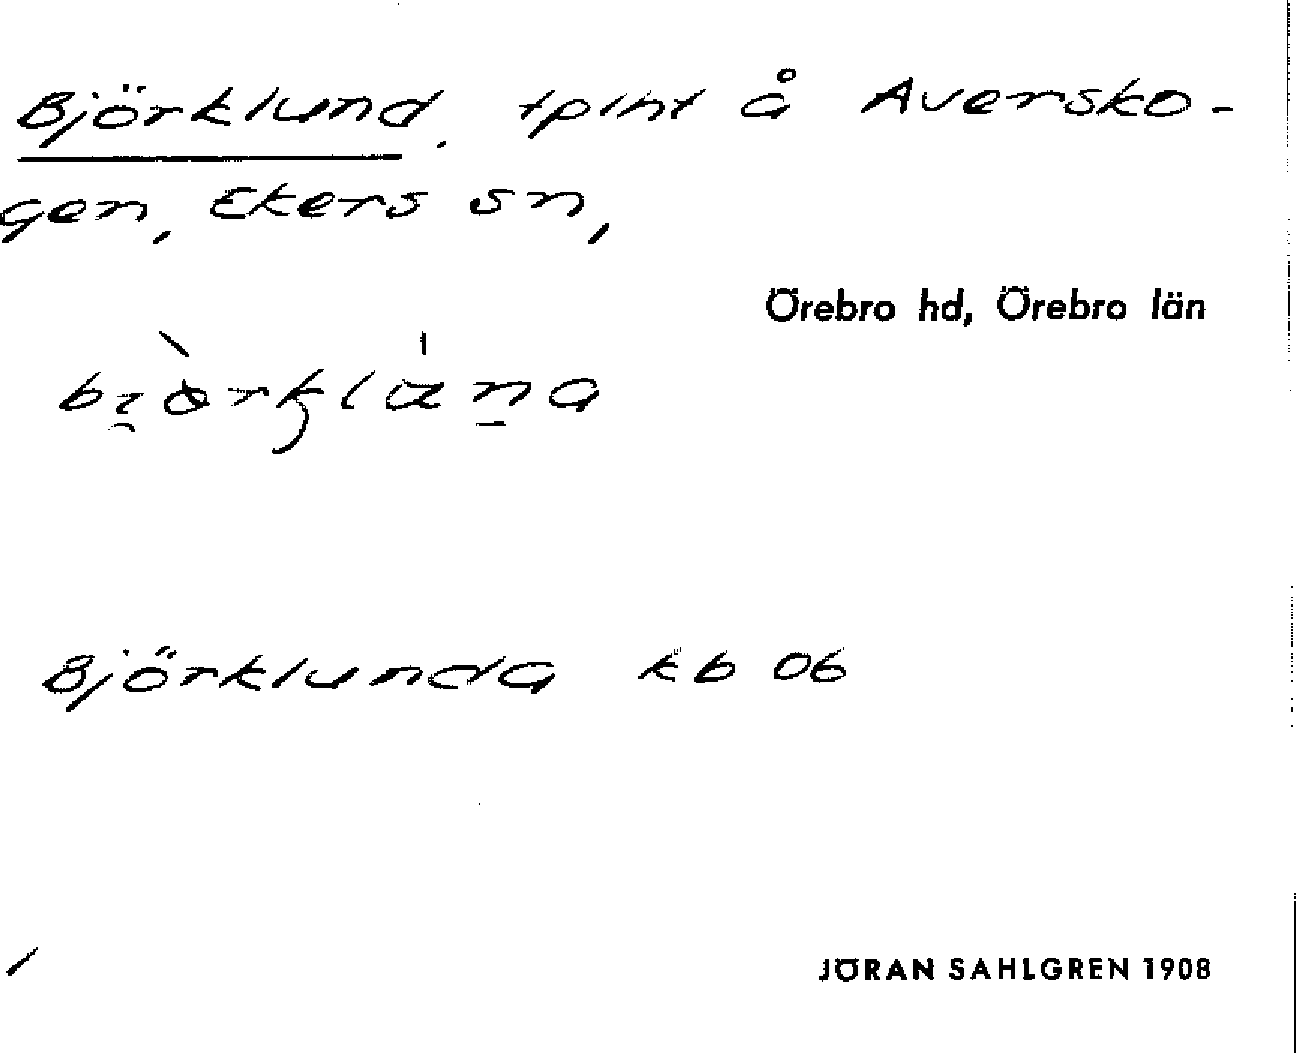 Björklund, tplht å Aversko-
gen, Ekers sn,
Örebro hd, Örebro län
Björklunda kb 06
JÖRAN SAHLGREN 1908